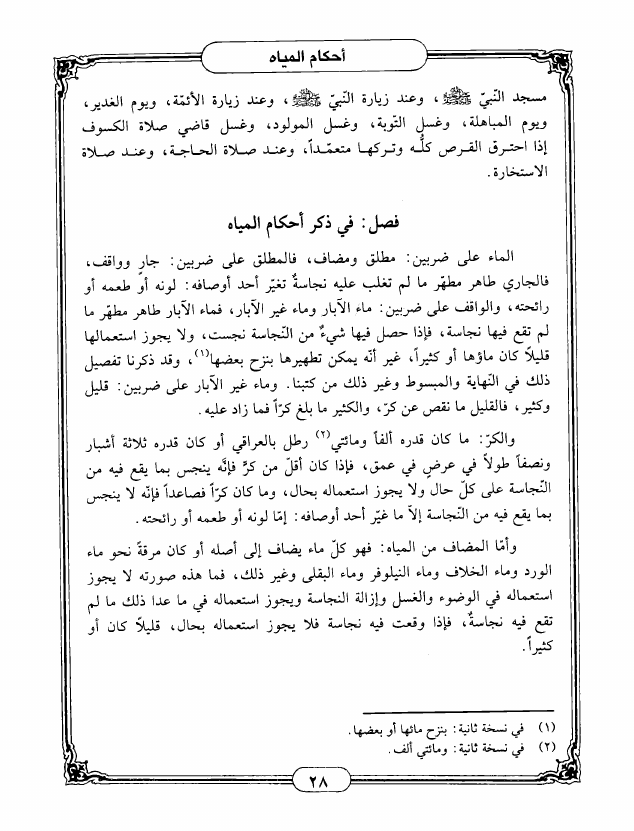 أحكام المياه
مسجد النّبيّ ﷺ، وعند زيارة النّبيّ ﷺ، وعند زيارة الأئمّة، ويوم الغدير،
ويوم المباهلة، وغسل التّوبة، وغسل المولود، وغسل قاضي صلاة الكسوف
إذا احترق القرص كلّه وتركها متعمّداً، وعند صلاة الحاجة، وعند صلاة
الاستخارة.
فصل: في ذكر أحكام المياه
الماء على ضربين: مطلق ومضاف، فالمطلق على ضربين: جارٍ وواقف،
فالجاري طاهر مطهّر ما لم تغلب عليه نجاسةٌ تغيّر أحد أوصافه: لونه أو طعمه أو
رائحته، والواقف على ضربين: ماء الآبار وماء غير الآبار، فماء الآبار طاهر مطهّر ما
لم تقع فيها نجاسة، فإذا حصل فيها شيءٌ من النّجاسة نجست، ولا يجوز استعمالها
قليلاً كان ماؤها أو كثيراً، غير أنّه يمكن تطهيرها بنزح بعضها(١)، وقد ذكرنا تفصيل
ذلك في النّهاية والمبسوط وغير ذلك من كتبنا. وماء غير الآبار على ضربين: قليل
وكثير، فالقليل ما نقص عن كرّ، والكثير ما بلغ كرّاً فما زاد عليه.
والكرّ: ما كان قدره ألفاً ومائتي(٢) رطل بالعراقي أو كان قدره ثلاثة أشبار
ونصفاً طولاً في عرضٍ في عمق، فإذا كان أقلّ من كرٍّ فإنّه ينجس بما يقع فيه من
النّجاسة على كلّ حال ولا يجوز استعماله بحال، وما كان كرّاً فصاعداً فإنّه لا ينجس
بما يقع فيه من النّجاسة إلاّ ما غيّر أحد أوصافه: إمّا لونه أو طعمه أو رائحته.
وأمّا المضاف من المياه: فهو كلّ ماء يضاف إلى أصله أو كان مرقةً نحو ماء
الورد وماء الخلاف وماء النيلوفر وماء البقلى وغير ذلك، فما هذه صورته لا يجوز
استعماله في الوضوء والغسل وإزالة النجاسة ويجوز استعماله في ما عدا ذلك ما لم
تقع فيه نجاسةٌ، فإذا وقعت فيه نجاسة فلا يجوز استعماله بحال، قليلاً كان أو
كثيراً.
(١) في نسخة ثانية: بنزح مائها أو بعضها.
(٢) في نسخة ثانية: ومائتي ألف.
٢٨